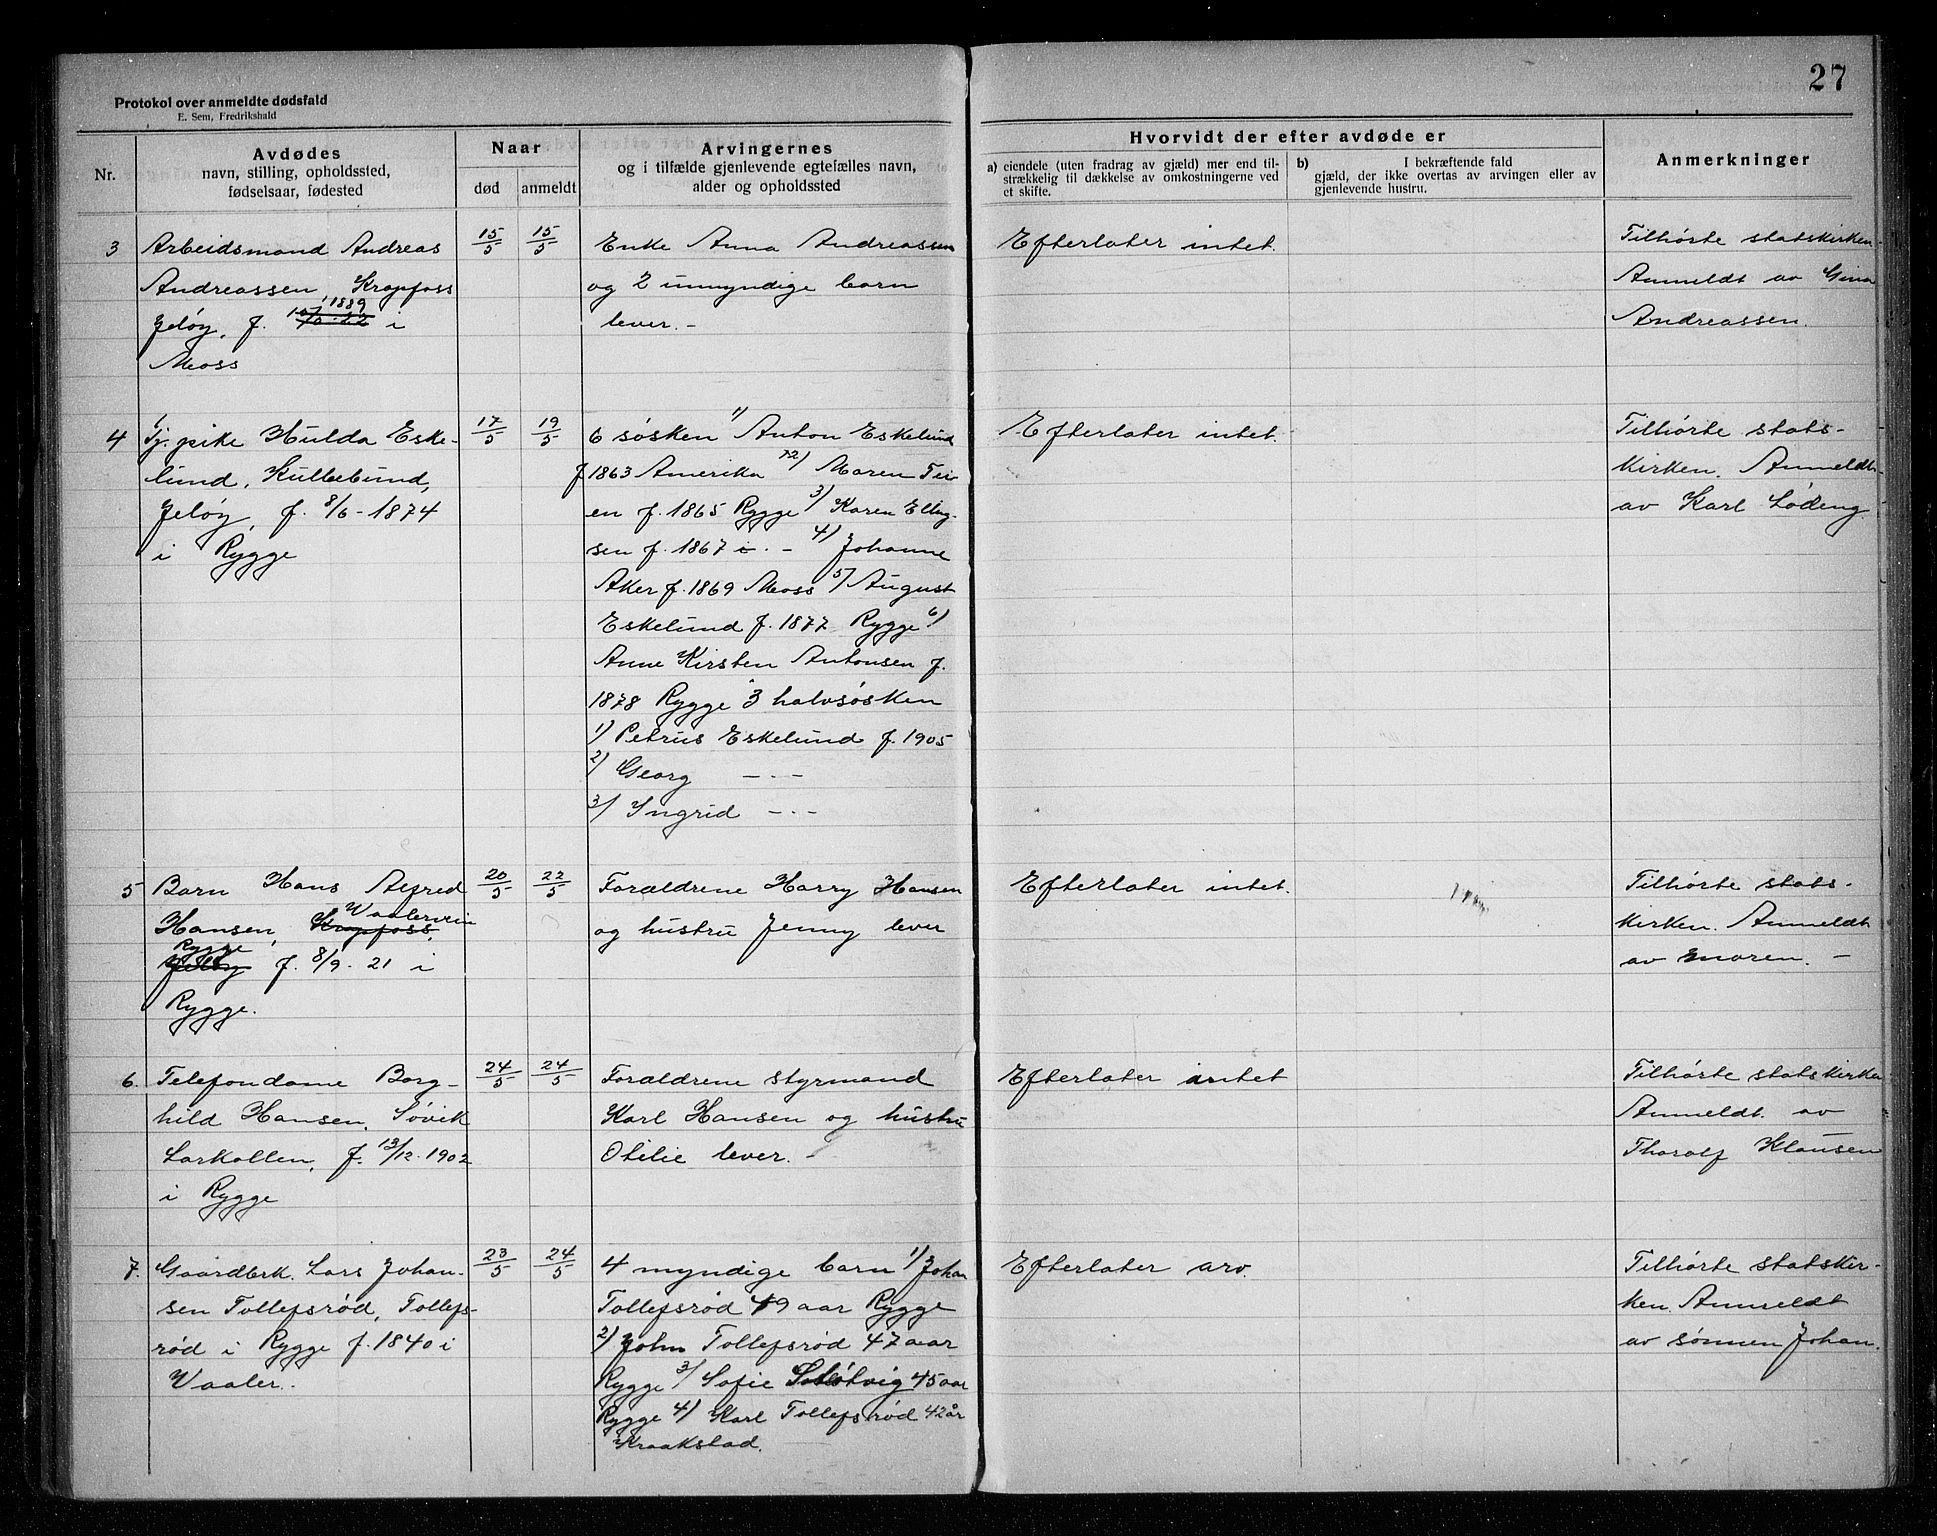 27
Protokol over anmeldte dødsfald
E. Sem, Fredrikshald
Nr.
Avdødes
navn, stilling, opholdssted,
fødselsaar, fødested
Naar
død
anmeldt
Arvingernes
og i tilfælde gjenlevende egtefælles navn,
alder og opholdssted
Hvorvidt der efter avdøde er
a) eiendele (uten fradrag av gjæld) mer end til-
strækkelig til dækkelse av omkostningerne ved
et skifte.
b) I bekræftende fald
gjæld, der ikke overtas av arvingen eller av
gjenlevende hustru.
Anmerkninger
3
Arbeidsmand Andreas
Andreassen, Kropfoss
1889
Jeløy, f. i
Moss
15/5
15/5
Enke Anna Andreassen
og 2 umyndige barn
lever. -
Efterlater intet.
Tilhørte statskirken.
Anmeldt av Gina
Andreassen.
4
Tj. pike Hulda Eske-
lund, Kullebund,
Jeløy, f. 8/6-1874
i Rygge
17/5
19/5
6 søsken 1) Anton Eskelund
f 1863 Amerika 2) Maren Tei-
en f. 1865 Rygge 3) Karen Elling-
sen f. 1867 i - 4) Johanne
Aker f. 1869 Moss 5) August
Eskelund f. 1877 Rygge 6)
Anne Kirsten Antonsen f.
1878 Rygge 3 halvsøsken
1) Petrus Eskelund f. 1905
2) Georg - . -
3) Ingrid - . -
Efterlater intet.
Tilhørte stats-
kirken. Anmeldt
av Karl Lødeng.
5
Barn Hans Alfred
Waalervein
Hansen, Kropfoss,
Rygge
Jeløy f. 8/9. 21 i
Rygge.
20/5
22/5
Forældrene Harry Hansen
og hustru Jenny lever
Efterlater intet.
Tilhørte stats-
kirken. Anmeldt
av moren. -
6.
Telefondame Borg-
hild Hansen, Søvik
Larkollen, f. 13/12. 1902
i Rygge
24/5
24/5
Forældrene styrmand
Karl Hansen og hustru
Otilie lever. -
Efterlater intet
Tilhørte statskirken
Anmeldt av
Thoralf Klausen
7.
Gaardbrk. Lars Johan-
sen Tollefsrød, Tollefs-
rød i Rygge f. 1840 i
Vaaler.
23/5
24/5
4 myndige barn 1) Johan
Tollefsrød 49 aar Rygge
2) John Tollefsrød 47 aar
Rygge 3) Sofie 45 aar
Rygge 4) Karl Tollefsrød 42 år
Kraakstad.
Efterlater arv.
Tilhørte statskir-
ken. Anmeldt
av sønnen Johan.